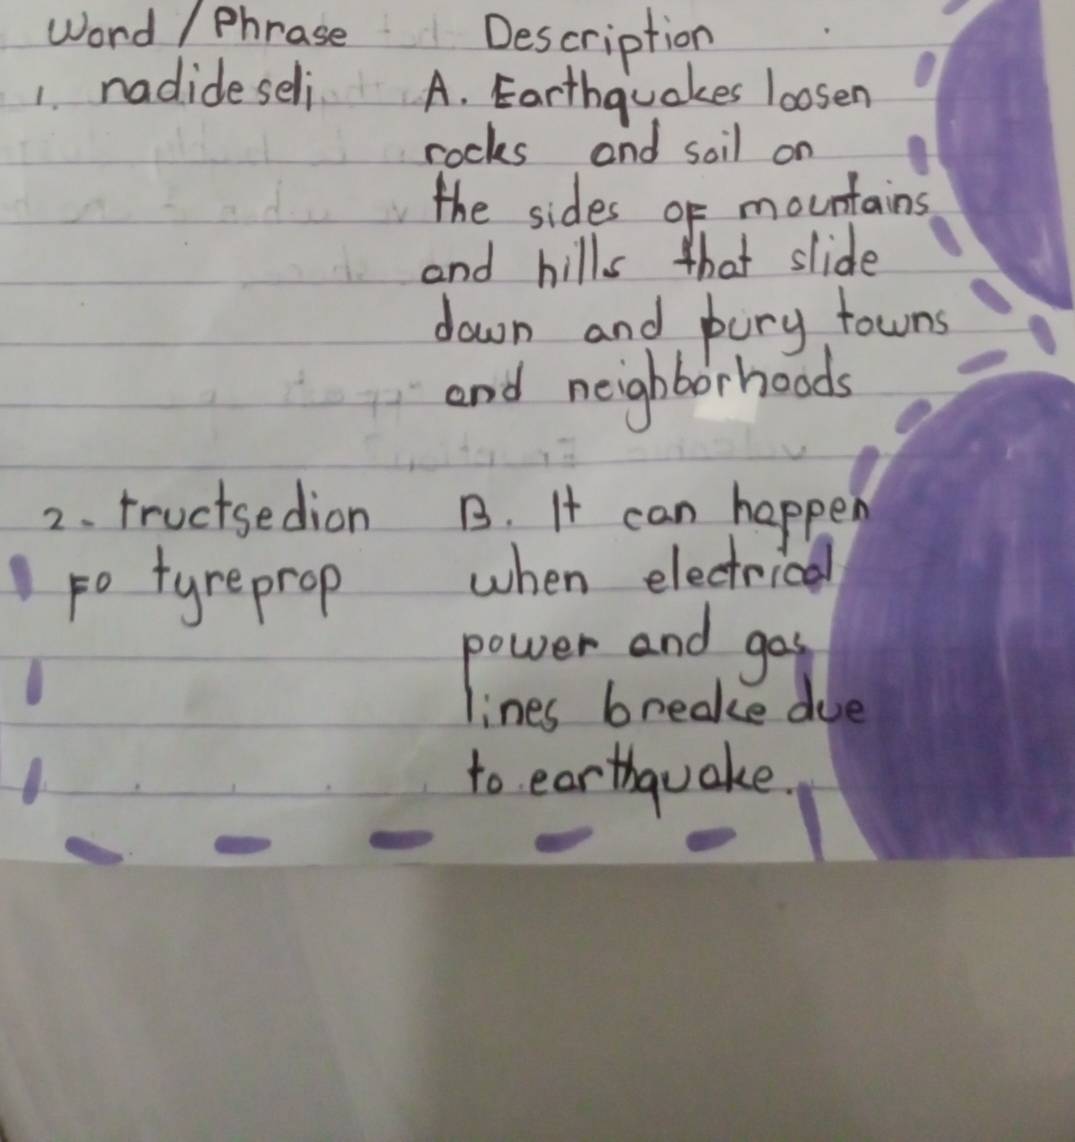 Word / Phrase Description
1. nadideseli A. Earthquakes loosen
rocks and soil on
the sides of mountains
and hills that slide
down and bury towns
and neighborhoods
2. tructsedion B. It can happen
Fo tyreprop when electrical
power and gas
lines breake due
to earthquake.